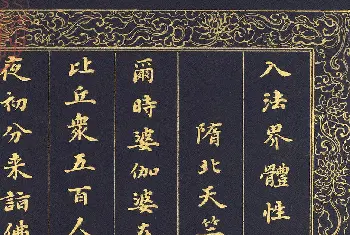 入法界體性
隋北天竺
爾時婆伽婆
比丘眾五百人
夜初分来詣佛